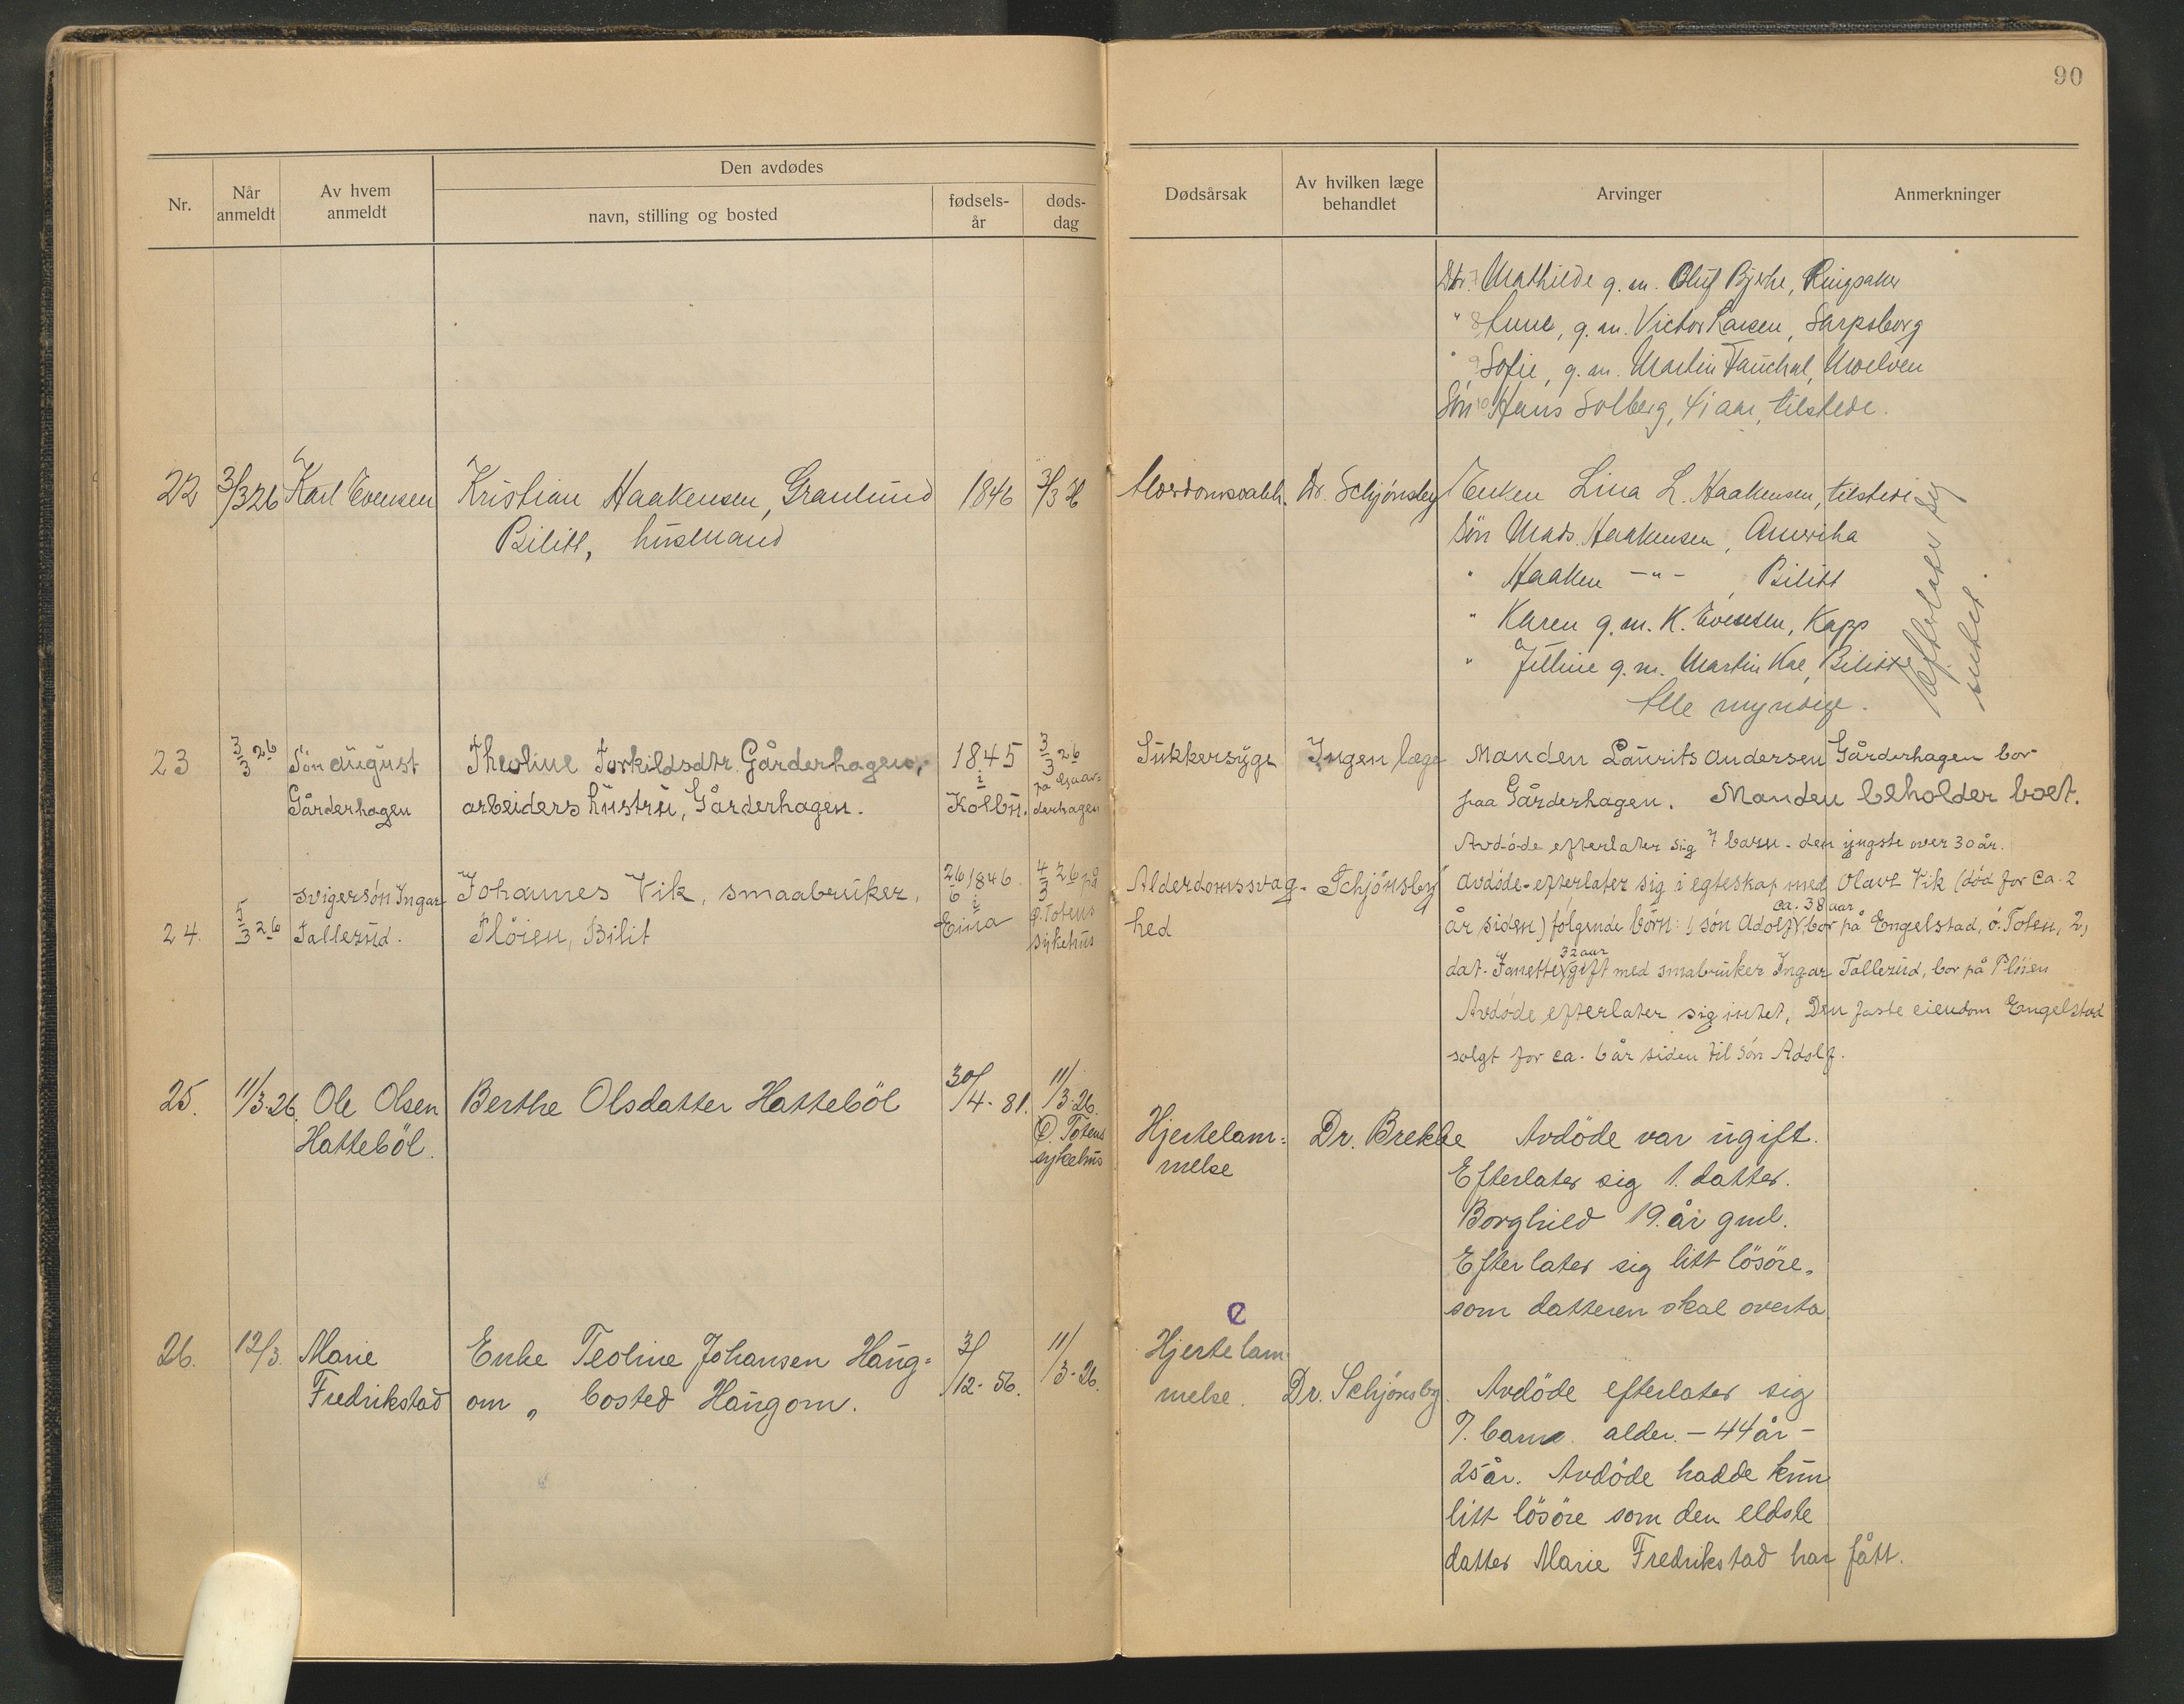 90
Nr.
Når anmeldt
Av hvem anmeldt
Den avdødes
navn, stilling og bosted
fødsels-
år
døds-
dag
Dødsårsak
Av hvilken læge
behandlet
Arvinger
Anmerkninger
Dtr. 7 Mathilde g. m. Oluf Bjerke, Ringsaker
" 8 Anne, g. m. Victor Larsen, Sarpsborg
" 9 Sofie, g. m. Martin Moelven
Søn 10 Hans Solberg, 41 aar, tilstede.
22 3/3 26 Karl Evensen Kristian Haakensen, Granlund 1846 3/3 26 Alderdomssvakh. Dr. Schjönsby Enken Lina L. Haakensen, tilstede
Bilitt, husmand
Søn Mads Haakensen, Amerika
" Haaken —"— , Bilitt
" Karen g. m. K. Evensen, Kapp
" g. m. Martin Bilitt
Alle myndige.
Efterlater sig
intet.
23 3/3 26 Søn August Theoline Torkildsdtr. Gårderhagen, 1845 3/3 26 Sukkersyge Ingen læge Manden Laurits Andersen Gårderhagen bor
Gårderhagen arbeiders hustru, Gårderhagen. i Kolbu. på Gaar=
derhagen paa Gårderhagen. Manden beholder boet.
Avdöde efterlater sig 7 barn - den yngste over 30 år.
24. 5/3 26 Svigersön Ingar Johannes Vik, smaabruker, 26/6 1846 4/3 26 på Alderdomssvag- Schjönsby Avdöde efterlater sig i egteskap med Olave Vik (död for ca. 2
Tallerud. Plöien, Bilit i Eina Ö. Totens
sykehus hed år siden) fölgende börn: 1, sön Adolf, ca. 38 aar bor på Engelstad, ö. Toten, 2,
dat. Janette, 32 aar gift med smabruker Ingar Tallerud, bor på Plöien
Avdöde efterlater sig intet, Den faste eiendom Engelstad
solgt for ca. 6 år siden til sön Adolf.
25. 11/3-26. Ole Olsen Berthe Olsdatter Hatteböl 30/4-81. 11/3-26.
Hatteböl. Ö. Totens
sykehus Hjertelam= Dr. Brekke Avdöde var ugift.
melse Efterlater sig 1. datter.
Borghild 19. år gml.
Efterlater sig litt lösöre,
som datteren skal overta
e
26. 12/3. Marie Enke Teoline Johansen Haug= 31/12-56. 11/3-26. Hjertelam
Fredrikstad om „ bosted Haugom. melse. Dr. Schjönsby. Avdöde efterlater sig
7. barn alder. – 44 år –
25 år. Avdöde hadde kun
litt lösöre som den eldste
datter Marie Fredrikstad har fått.